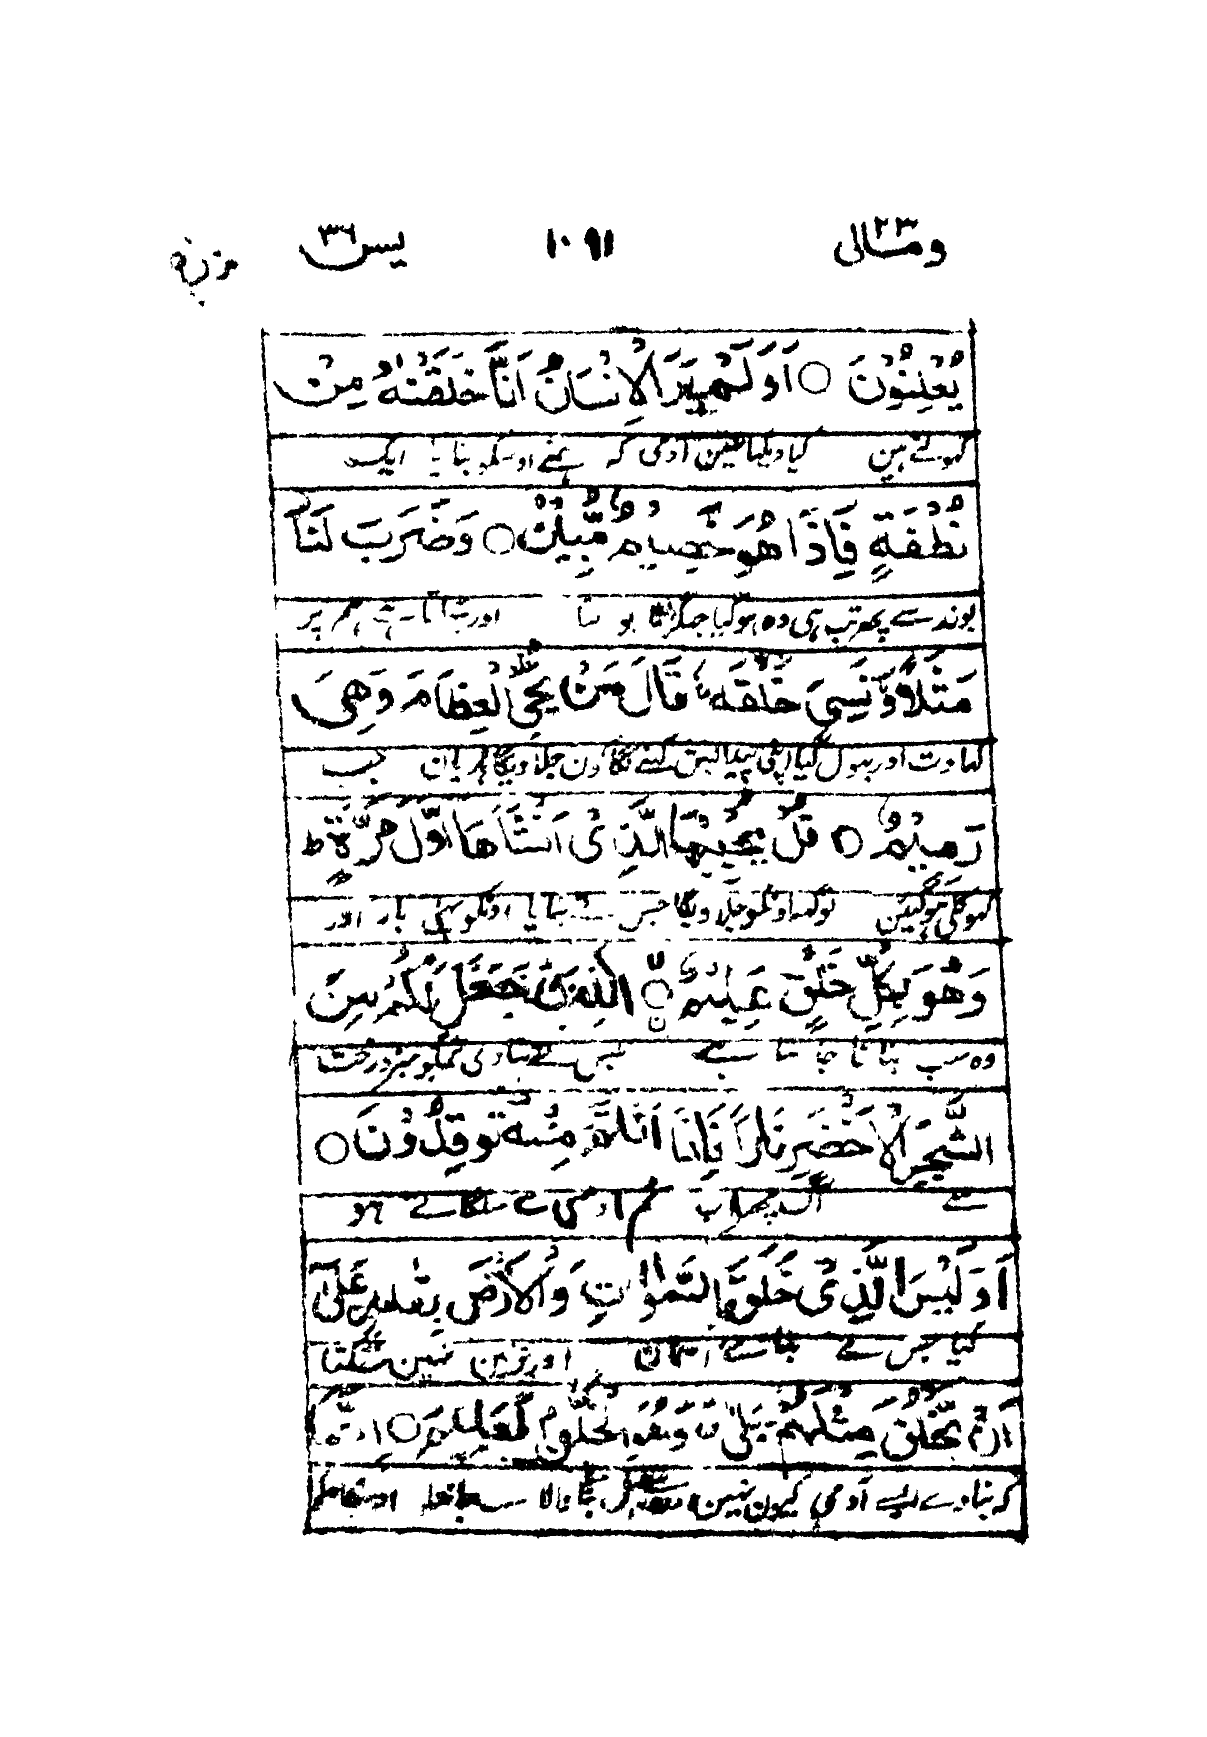 ومالی ۲۳ ۱۰۹۱ یٰس ۳۶
يُعْلِنُوْنَ ○ اَوَلَمْ يَرَ الْاِنْسَانُ اَنَّا خَلَقْنٰهُ مِنْ
کھولتے ہین کیا دیکھا نہین آدمی کہ ہمنے اوسکو بنایا ایک
نُطْفَةٍ فَاِذَا هُوَ خَصِيْمٌ مُّبِيْنٌ ○ وَضَرَبَ لَنَا
بوند سے پھر تب ہی وہ ہوگیا جھگڑتا بولتا اور بٹھاتا ہے ہم پر
مَثَلًا وَّنَسِىَ خَلْقَهٗ ؕ قَالَ مَنْ يُّحْىِ الْعِظَامَ وَهِىَ
کہاوت اور بھول گیا اپنی پیدایش کہنے لگا کون جلاویگا ہڈیان جب
رَمِيْمٌ ○ قُلْ يُحْيِيْهَا الَّذِىْ اَنْشَاَهَا اَوَّلَ مَرَّةٍ ط
کھوکھلی ہوگئین تو کہہ اونکو جلاویگا جس نے بنایا اونکو پہلی بار اور
وَهُوَ بِكُلِّ خَلْقٍ عَلِيْمٌ ○ الَّذِىْ جَعَلَ لَكُمْ مِنَ
وہ سب بنانا جانتا ہے جس نے بنادی تمکو سبز درخت
الشَّجَرِ الْاَخْضَرِ نَارًا فَاِذَا اَنْتُمْ مِنْهُ تُوْقِدُوْنَ ○
سے آگ پھر اب تم اوس سے سلگاتے ہو
اَوَلَيْسَ الَّذِىْ خَلَقَ السَّمٰوٰتِ وَالْاَرْضَ بِقٰدِرٍ عَلٰٓى
کیا جس نے بنائے آسمان اور زمین نہین سکتا
اَنْ يَّخْلُقَ مِثْلَهُمْ بَلٰى وَهُوَ الْخَلّٰقُ الْعَلِيْمُ ○ اِنَّمَا
کہ بناوے ایسے آدمی کیون نہین بنانے والا سب جانتا